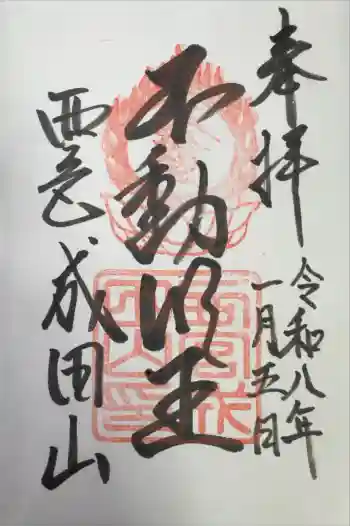 奉拝
令和八年
一月五日
不動明王
西邑成田山